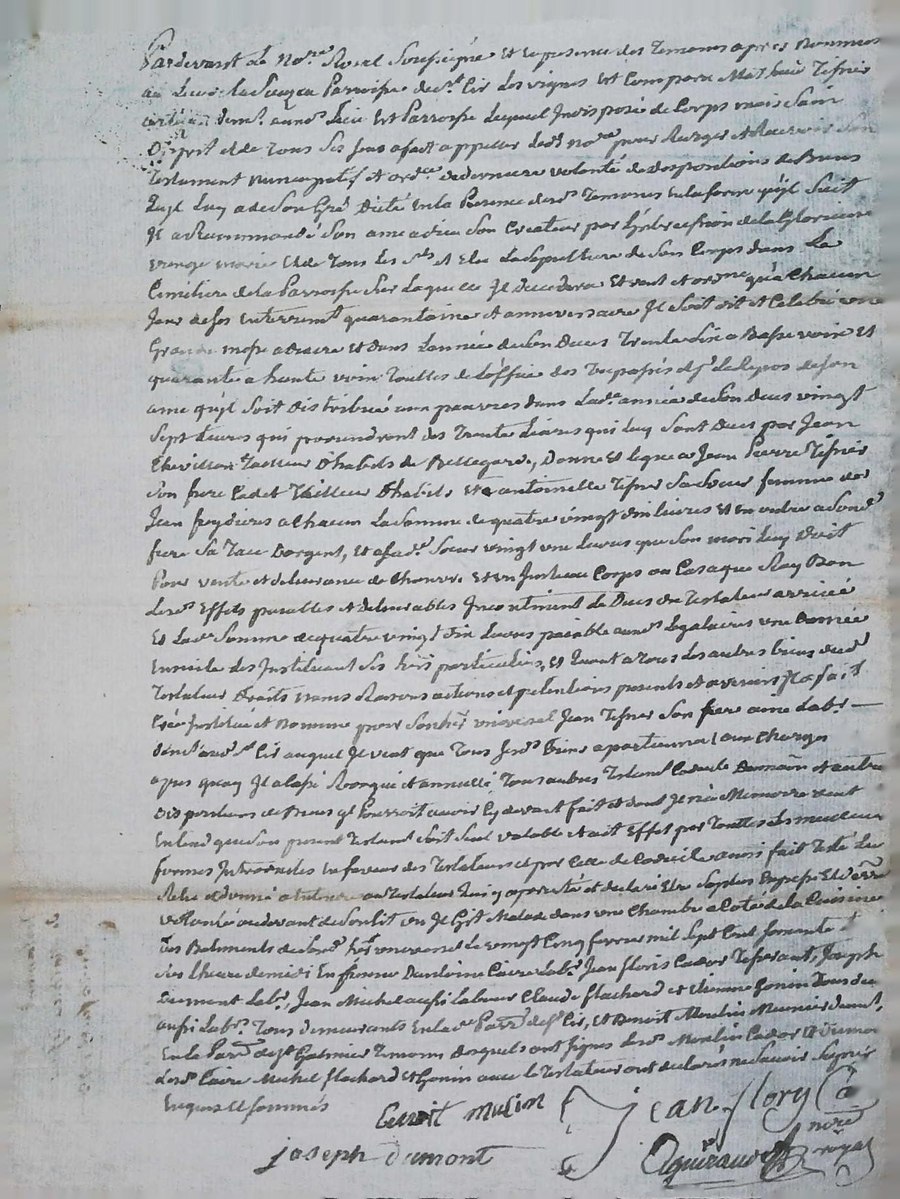 Pardevant Le No.re Royal Soussigné Et En presence des Temoins apres nommés
au Lieu de Paroisse de st. Cir Les vignes Est Comparu Mathieu Tisner
demt. aud. Lieu Et Parroisse Lequel Indisposé de Corps mais Sain
D'Esprit et de Tous Ses Sens a fait appeller Led. nore. pour Rediger et Recevoir Son
Testament nuncupatif et ordce. de derniere volonté de dispositions de Biens
qu'il Luy a de Son Gré Dicté En la Presence desd. Temoins En la forme qu'il Suit
Il a Recommandé Son ame a dieu Son Createur par L'Intercession de la Glorieuse
vierge marie Et de Tous les Sts. et Elu La Sepulture de Son Corps dans Le
Cimetiere de la Parroisse Sur Laquelle Il decedera Et veut et ordonne qu'a Chacun
Jour de Ses Enterremt. quarantaine et anniversaire Il Soit dit et Celebré une
Grande messe a diacre Et dans L'année de Son Deces Trente Six a Basse voix Et
quarante a haute voix Touttes de L'office des Trepassés pr. le Repos de Son
ame qu'il Soit Distribué aux pauvres dans Lade. année de Son Deces vingt
Sept Livres qui proviendront des Trente Livres qui Luy Sont Dues par Jean
Chevillon Tailleur D'habits de Bellegarde, Donne Et Legue a Jean Pierre Tisner
Son frere Cadet Tailleur D'habits Et a antoinette Tisner Sa Soeur femme de
Jean freydieres a Chacun La Somme de quatre vingt dix Livres Et en outre a Sond.
frere Sa Tace D'argent, Et a Sade. Soeur vingt une Livres que Son mari Luy Doit
Pour vente et delivrance de Chanvre Et un Justeau Corps ou Casaque Ray Bon
Lesd. Effets payables et delivrables Incontinent Le Deces du Testateur arrivé
Et Lade. Somme de quatre vingt Dix Livres paiable auxd. Legataires une Année
Ensuite Les Instituant Ses hers. particuliers, Et Quant a Tous Les autres biens dud.
Testateur Droits noms Raisons actions et pretentions presents et avenirs Il a fait
Créé Institué et Nommé pour Son her. universel Jean Tisner Son frere ainé Labr.
demt. aud. st. Cir auquel Il veut que Tous Sesd. Biens apartiennent aux Charges
apres quoy Il a Cassé Revoqué et annullé Tous autres Testamt. Codicile Donnaon. et autre
Dispositions de Biens qu'il Pourroit avoir Cy devant fait et dont Il n'a Memoire veut
Entend que Son present Testamt. Soit Seul valable et ait Effet par Touttes Les meilleures
formes Introduites En faveur des Testateurs et par Celle de Codicile ainsi fait Testé Leu
Releu et donné a Entendre au Testateur Qui y a persisté et declaré Etre
volonté au devant de Son lit ou Il Gist Malade dans une Chambre a Coté de la Cuisine
Des Batiments de Sond. her. universel Le vingt Cinq fevrier mil Sept Cent Soixante
Six L'heure de midi En presence D'antoine Caire Labr. Jean floris Cador Tisserant, Joseph
Dumont Labr. Jean Michel aussi Laboureur Claude flachard et Etienne Gonin
aussi Labrs. Tous demeurants En lade. Parre. de st. Cir, Et Benoit Moulin Meunier demt.
En la Parre. de st. Galmier Temoins Desquels ont Signé Lesd. Moulin Cador et Dumont
Lesd. Caire Michel flachard Et Gonin avec le Testateur ont declarés ne Savoir Signer
Enquis Et Sommés
benoit mulin jean flory Ca
joseph dumont Aguiraud nore. royal